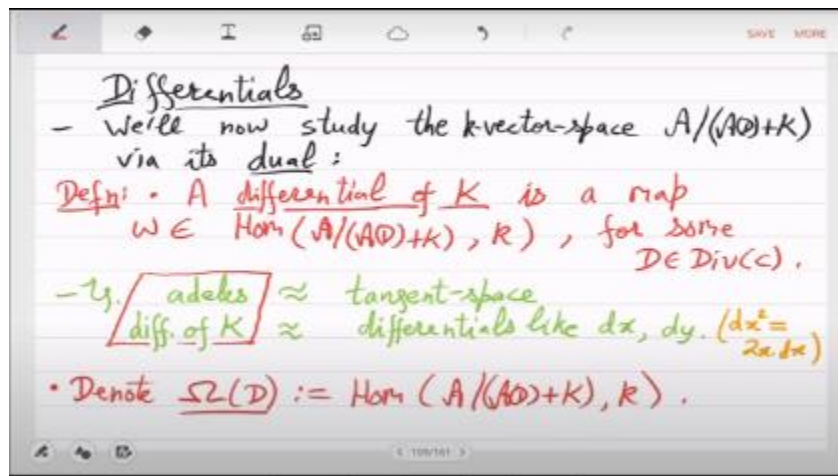 SAVE MORE
Differentials
- We'll now study the k-vector-space A/(A(D)+K)
via its dual :
Defn: • A differential of K is a map
ω ∈ Hom(A/(A(D)+K), k), for some
D ∈ Div(C).
adeles ≈ tangent-space
diff. of K ≈ differentials like dx, dy. (dx²=
2x dx)
• Denote Ω(D) := Hom(A/(A(D)+K), k).